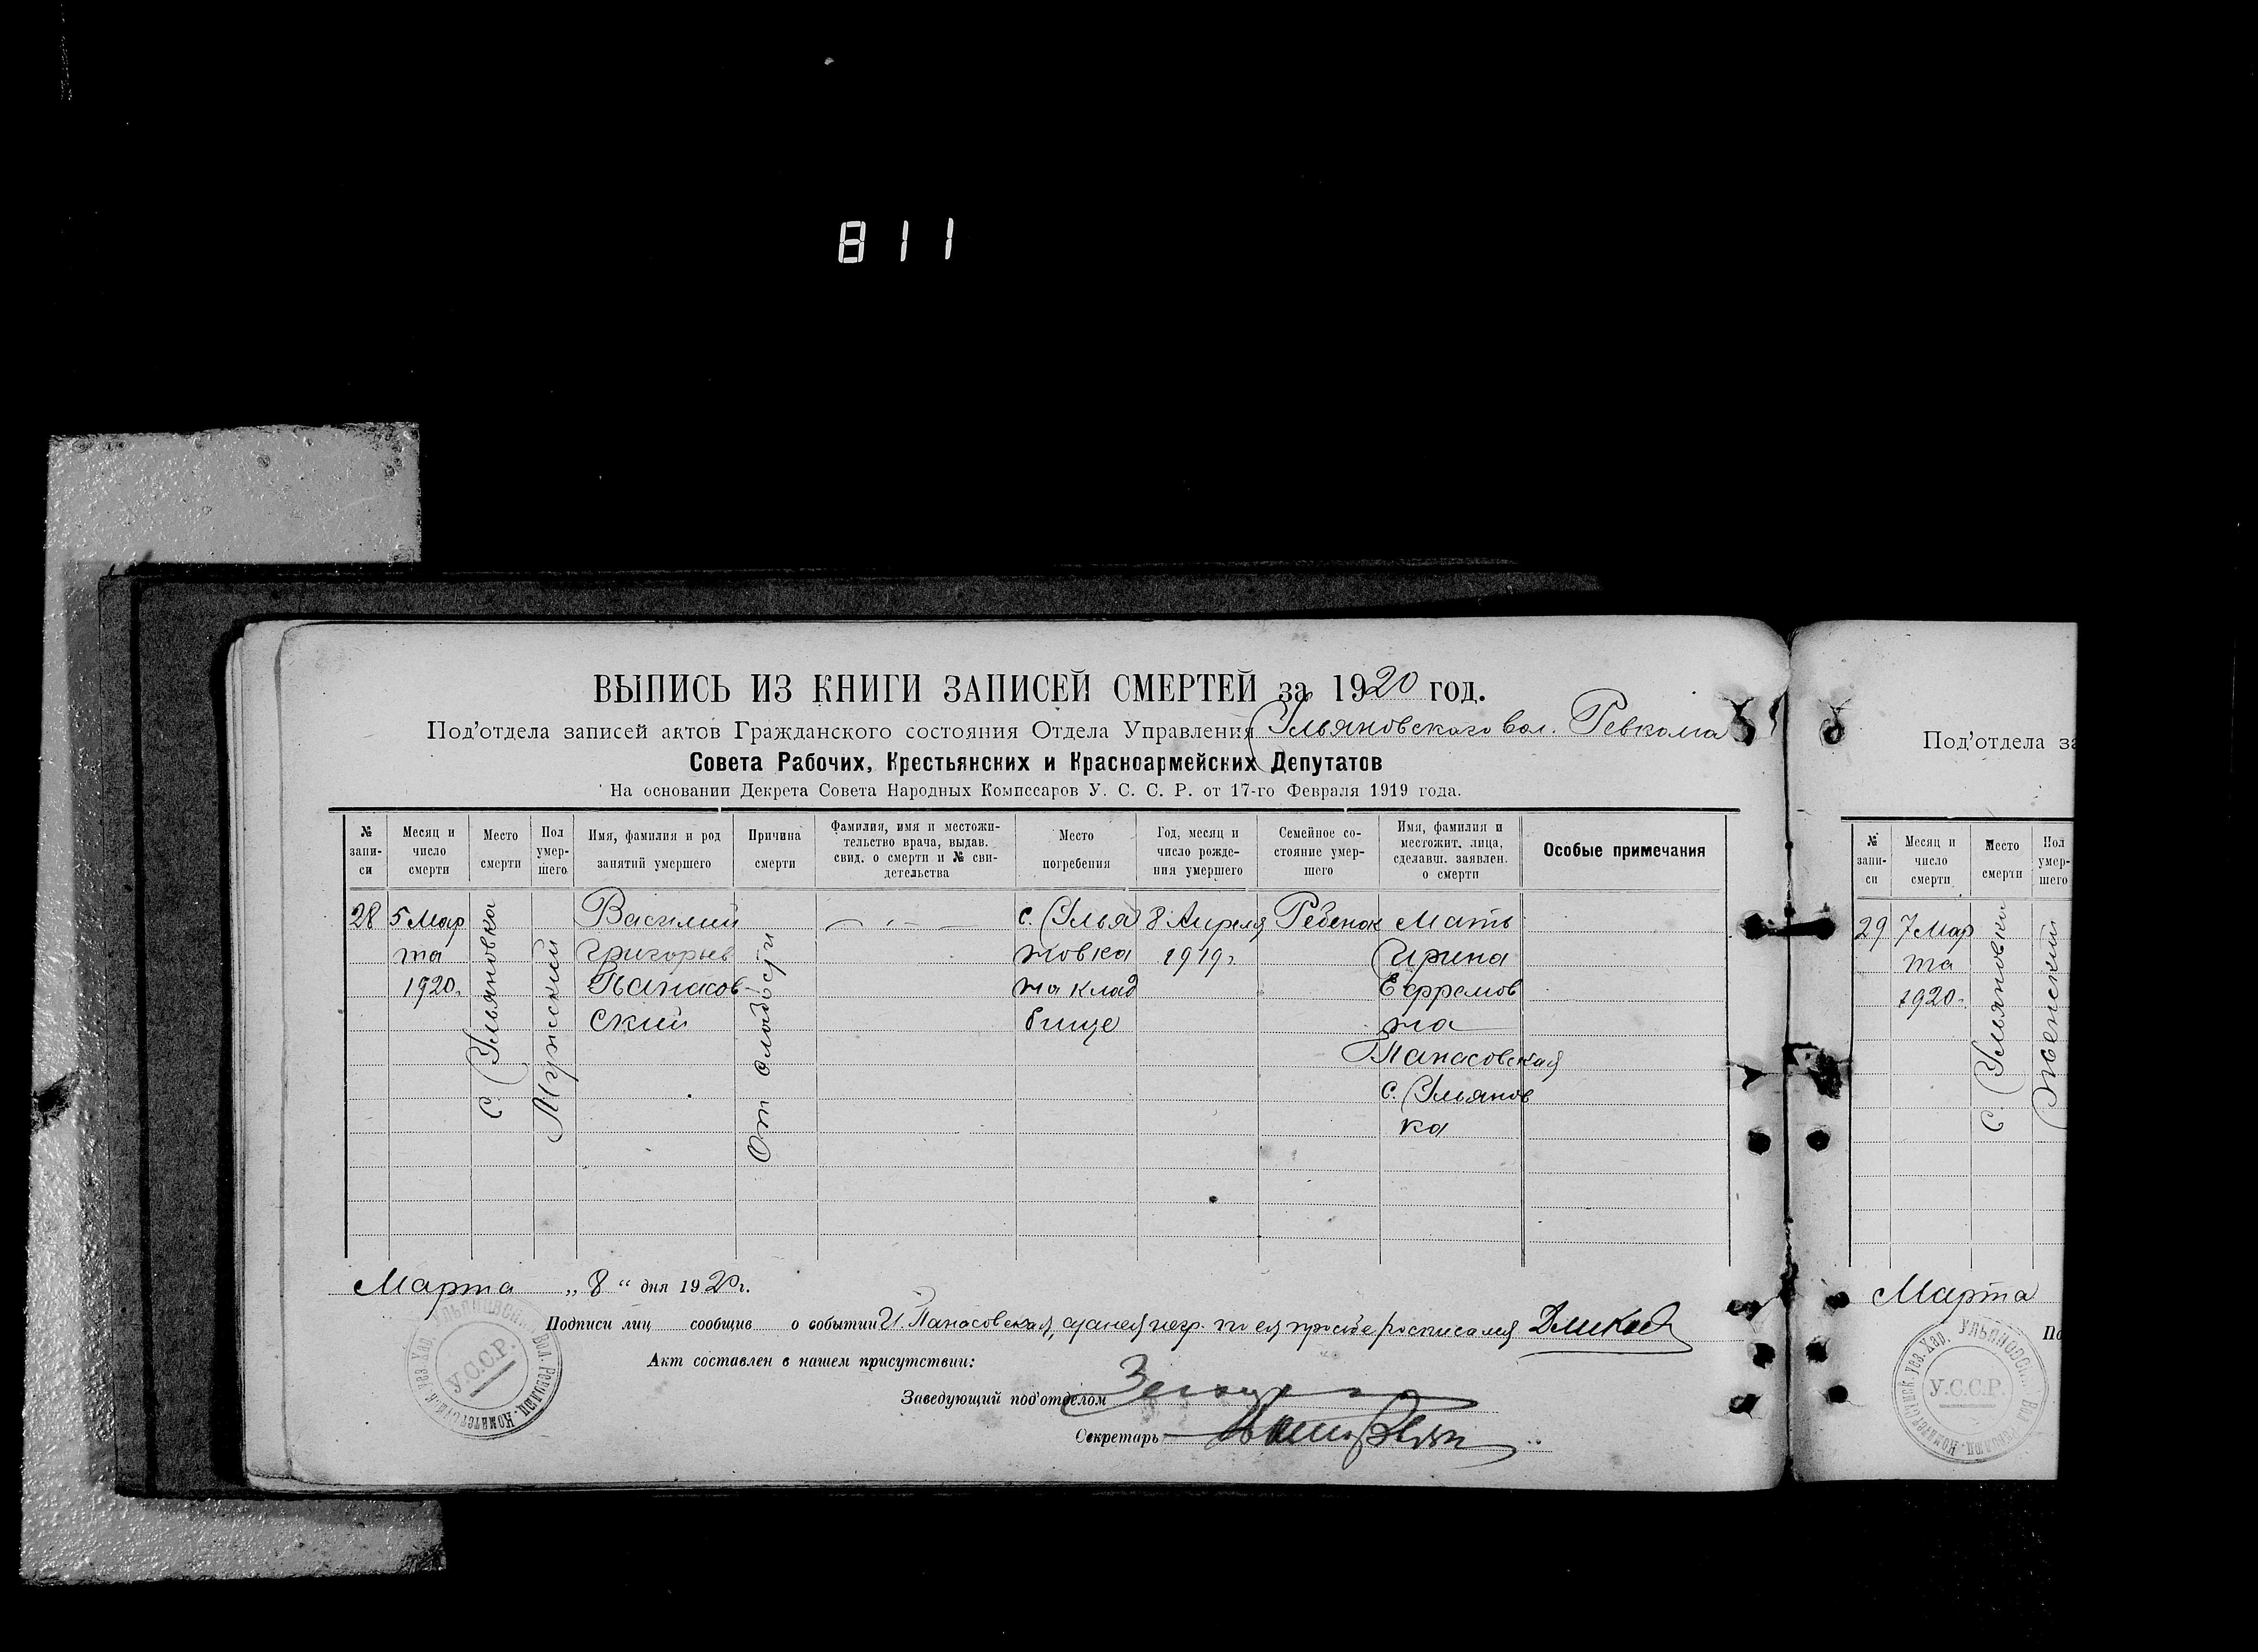 811
ВЫПИСЬ ИЗ КНИГИ ЗАПИСЕЙ СМЕРТЕЙ за 1920 год.
Под'отдела записей актов Гражданского состояния Отдела Управления Ульяновского вол. Ревкома
Совета Рабочих, Крестьянских и Красноармейских Депутатов
На основании Декрета Совета Народных Комиссаров У. С. С. Р. от 17-го Февраля 1919 года.
№ запи-
си
Месяц и
число
смерти
Место
смерти
Пол
умер-
шего
Имя, фамилия и род
занятий умершего
Причина
смерти
Фамилия, имя и местожи-
тельство врача, выдав.
свид. о смерти и № сви-
детельства
Место
погребения
Год, месяц и
число рожде-
ния умершего
Семейное со-
стояние умер-
шего
Имя, фамилия и
местожит. лица,
сделавш. заявлен.
о смерти
Особые примечания
28
5 Мар
та
1920.
с. Ульяновка
Мужский
Василий
Григорьев
Панасов-
ский
От слабости
с. Улья
новка
на клад
бище
8 Апреля
1919г
Ребенок
Мать
Ирина
Ефремов
на
Панасовская
с. Улянов
ка
Марта „ 8 “ дня 1920 г.
Подписи лиц сообщив о событии И. Панасовская, а за нея негр. по ея просьбе росписался
Акт составлен в нашем присутствии:
Заведующий под'отделом
Секретарь
Ульяновск. Вол. Революц. Комитет Сумск. уез. Хар.
У.С.С.Р.
Под'отдела за
№
запи-
си
Месяц и
число
смерти
Место
смерти
Пол
умер-
шего
29
7 Мар
та
1920.
с. Ульяновка
Женский
Марта
По
Ульяновск. Вол. Революц. Комитет Сумск. уез. Хар.
У.С.С.Р.